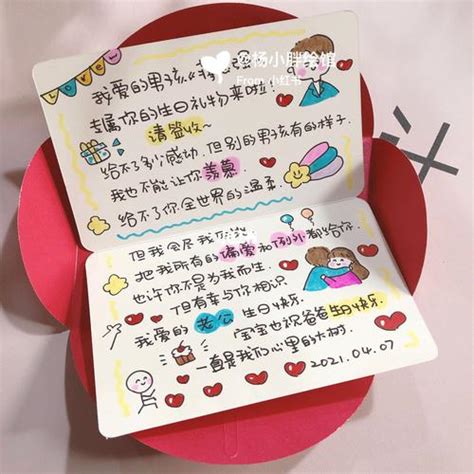 @杨小胖绘馆
From 小红书
LOVE
我爱的男孩《我
专属你的生日礼物来啦！
请签收~
给不了多少感动.但别的男孩有的样子.
我也不能让你羡慕.
给不了你全世界的温柔.
但我会尽我所能
把我所有的偏爱和例外都给你.
也许你不是为我而生.
但有幸与你相识
我爱的老公生日快乐.
宝宝也祝爸爸生日快乐.
一直是我们心里的大树.
2021.04.07